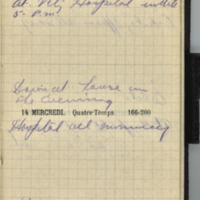 at Hospital until
5 P.M.
Down at house in
the evening
14 MERCREDI. Quatre-Temps 166-200
Hospital all morning